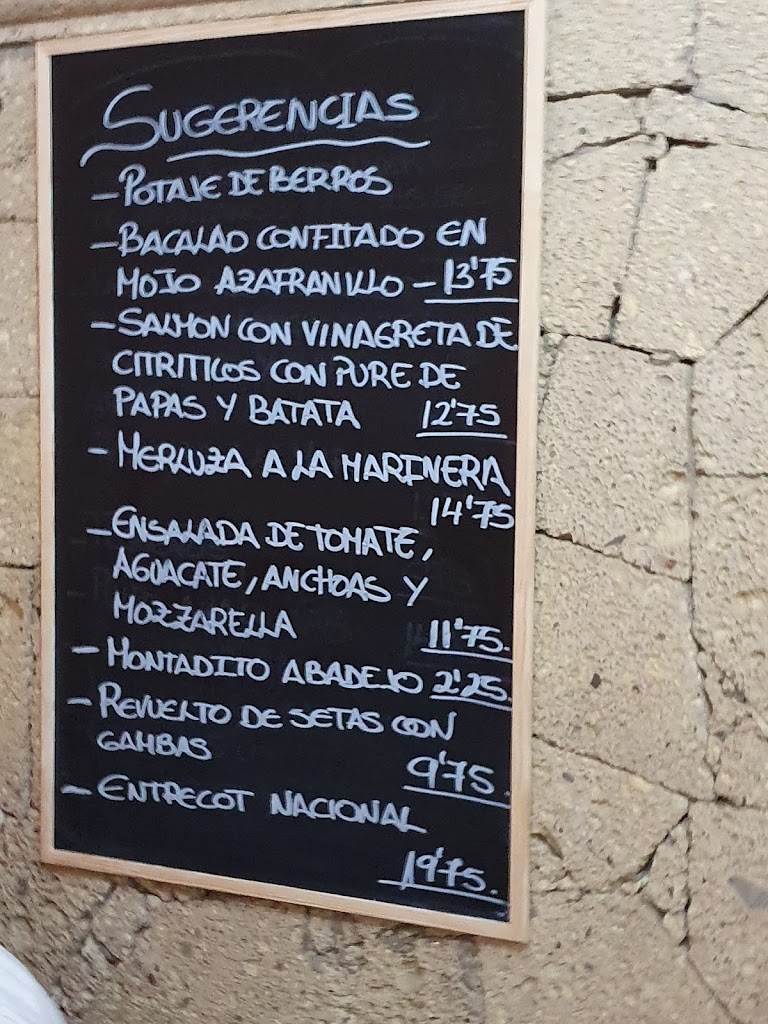 SUGERENCIAS
- POTAJE DE BERROS
- BACALAO CONFITADO EN
MOJO AZAFRANILLO - 13'75
- SALMON CON VINAGRETA DE
CITRITICOS CON PURE DE
PAPAS Y BATATA 12'75
- MERLUZA A LA MARINERA
14'75
- ENSALADA DE TOMATE,
AGUACATE, ANCHOAS Y
MOZZARELLA 11'75.
- MONTADITO ABADEJO 2'25.
- REVUELTO DE SETAS CON
GAMBAS 9'75.
- ENTRECOT NACIONAL
19'75.